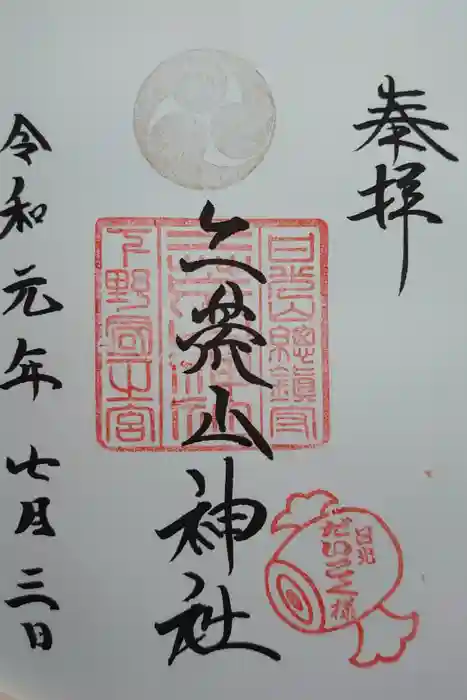 奉拝
二荒山神社
日光山総鎮守
下野国一之宮
日光
だいこく様
令和元年七月三日